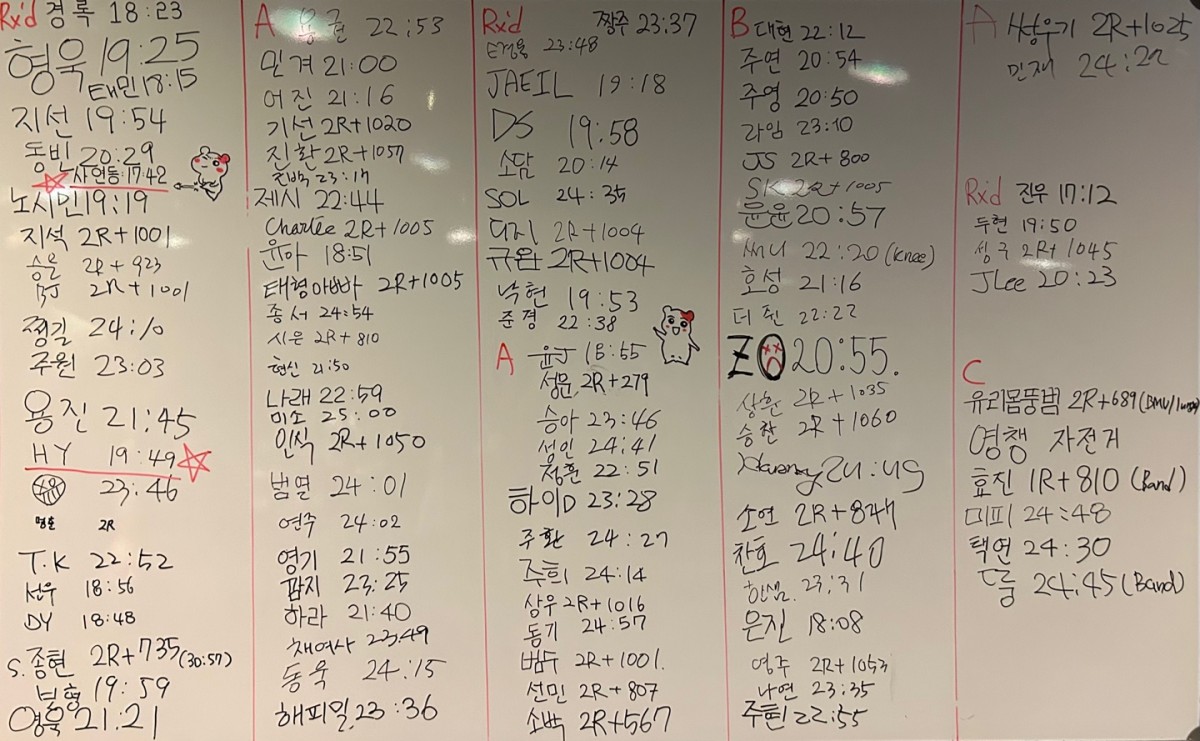 Rx'd 경록 18:23
형욱 19:25
태민 18:15
지선 19:54
동빈 20:29
사인동:17:42
노시민 19:19
지석 2R+1001
승운 2R+923
BJ 2R+1001
쩡길 24:10
주원 23:03
용진 21:45
HY 19:49
23:46
2R
T.K 22:52
선우 18:56
DY 18:48
S.종현 2R+735(30:57)
보형 19:59
영욱 21:21
A 용굴 22:53
민겨 21:00
어진 21:16
기선 2R+1020
진환 2R+1057
23:17
제시 22:44
Charlee 2R+1005
윤아 18:51
태형아빠 2R+1005
종서 24:54
시은 2R+810
현신 21:50
나래 22:59
미소 25:00
인식 2R+1050
범열 24:01
연주 24:02
영기 21:55
팜지 23:25
하라 21:40
채여사 23:49
동욱 24:15
해피밀 23:36
Rx'd 짱주 23:37
23:48
JAEIL 19:18
DS 19:58
소담 20:14
SOL 24:35
디지 2R+1004
규완 2R+1004
낙현 19:53
준경 22:38
A 윤J 18:55
성문 2R+279
승아 23:46
성인 24:41
정훈 22:51
하이D 23:28
주환 24:27
주희 24:14
상우 2R+1016
동기 24:57
범수 2R+1001.
선민 2R+807
소백 2R+567
B 대현 22:12
주연 20:54
주영 20:50
라임 23:10
JS 2R+800
SK 2R+1005
윤윤 20:57
써니 22:20(knee)
호성 21:16
더 훤 22:22
20:55.
상훈 2R+1035
승찬 2R+1060
24:49
소연 2R+847
찬호 24:40
한샘 23:31
은진 18:08
영주 2R+1053
나연 23:35
주현 22:55
A 쌍우기 2R+1025
민재 24:22
Rxd 진우 17:12
두현 19:50
성구 2R+1045
JLee 20:23
C
유리몸뚱범 2R+689
영챙 자전거
효진 1R+810 (Band)
미피 24:48
택연 24:30
24:45(Band)